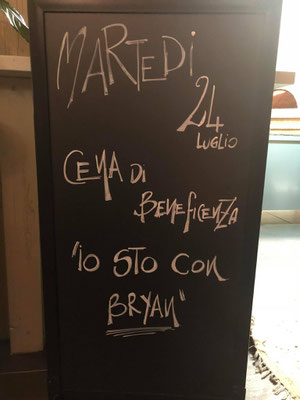 MARTEDI
24
LUGLIO
CENA DI
BENEFICENZA
"IO STO CON
BRYAN"